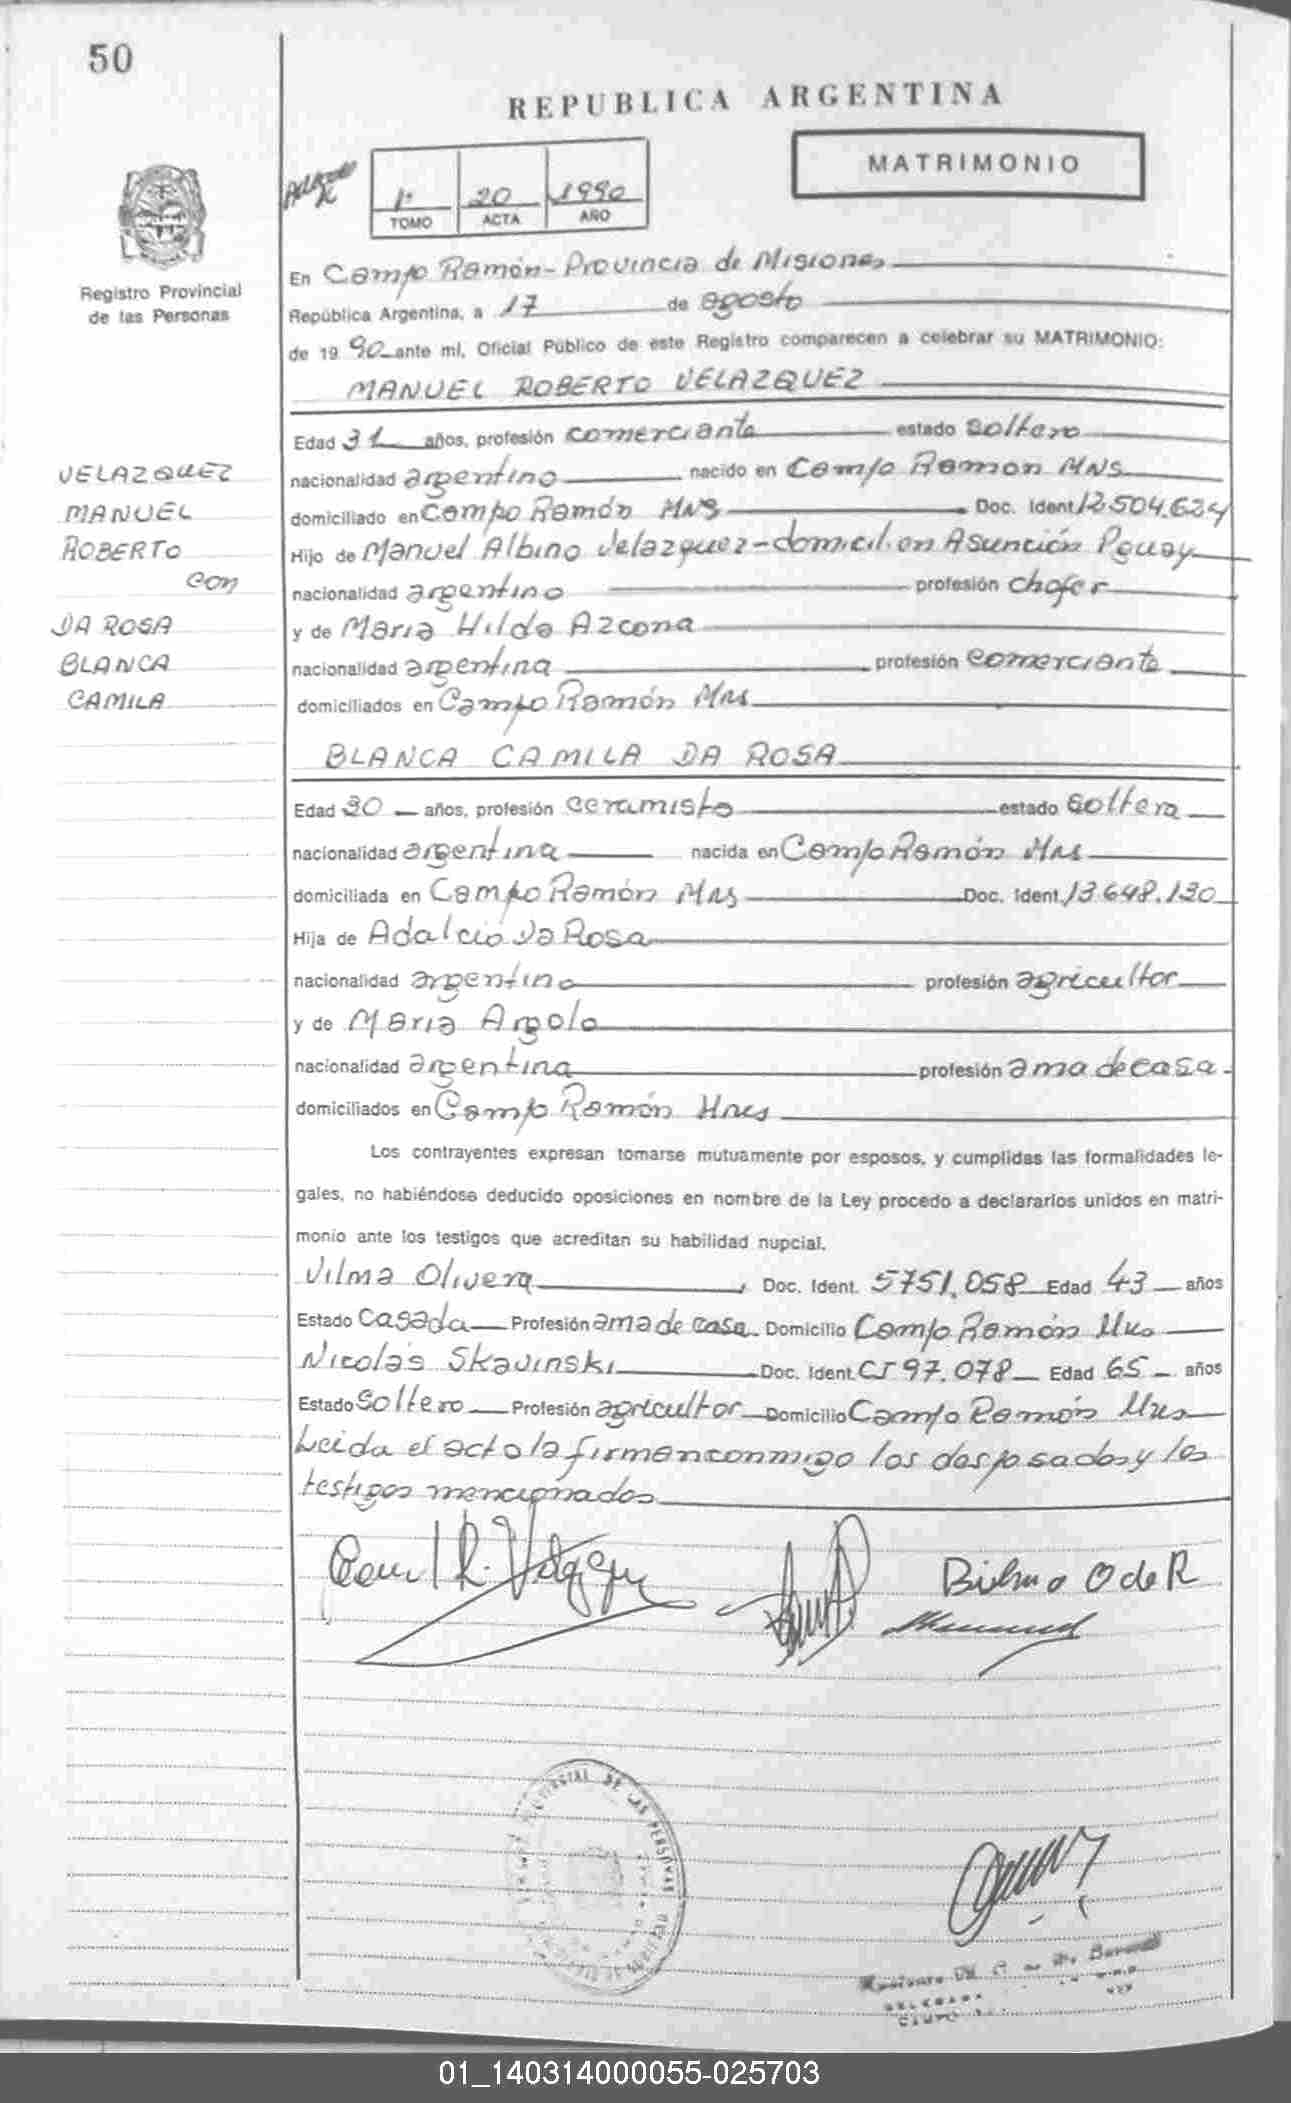 50
REPUBLICA ARGENTINA
MATRIMONIO
1º 20 1990
TOMO ACTA AÑO
Registro Provincial
de las Personas
En Campo Ramón - Provincia de Misiones
República Argentina, a 17 de agosto
de 19 90 ante mí, Oficial Público de este Registro comparecen a celebrar su MATRIMONIO:
MANUEL ROBERTO VELAZQUEZ
Edad 31 años, profesión comerciante estado soltero
nacionalidad argentino nacido en Campo Ramon MNS
domiciliado en Campo Ramón MNS Doc. Ident. 12.504.624
Hijo de Manuel Albino Velazquez - domicil. en Asunción Pguay
nacionalidad argentino profesión chofer
y de Maria Hilda Azcona
nacionalidad argentina profesión comerciante
domiciliados en Campo Ramón Mns
VELAZQUEZ
MANUEL
ROBERTO
con
DA ROSA
BLANCA
CAMILA
BLANCA CAMILA DA ROSA
Edad 30 años, profesión ceramista estado soltera
nacionalidad argentina nacida en Campo Ramón Mns
domiciliada en Campo Ramón Mns Doc. Ident. 13.648.130
Hija de Adalcio Da Rosa
nacionalidad argentino profesión agricultor
y de Maria Argolo
nacionalidad argentina profesión ama de casa
domiciliados en Campo Ramón Mnes
Los contrayentes expresan tomarse mutuamente por esposos, y cumplidas las formalidades le-
gales, no habiéndose deducido oposiciones en nombre de la Ley procedo a declararlos unidos en matri-
monio ante los testigos que acreditan su habilidad nupcial.
Vilma Olivera, Doc. Ident. 5751.058 Edad 43 años
Estado Casada Profesión ama de casa Domicilio Campo Ramón Mns
Nicolás Skavinski Doc. Ident. CI 97.078 Edad 65 años
Estado soltero Profesión agricultor Domicilio Campo Ramón Mns
Leida el acta la firman conmigo los desposados y los
testigos mencionados
Bilma O de R
01_140314000055-025703